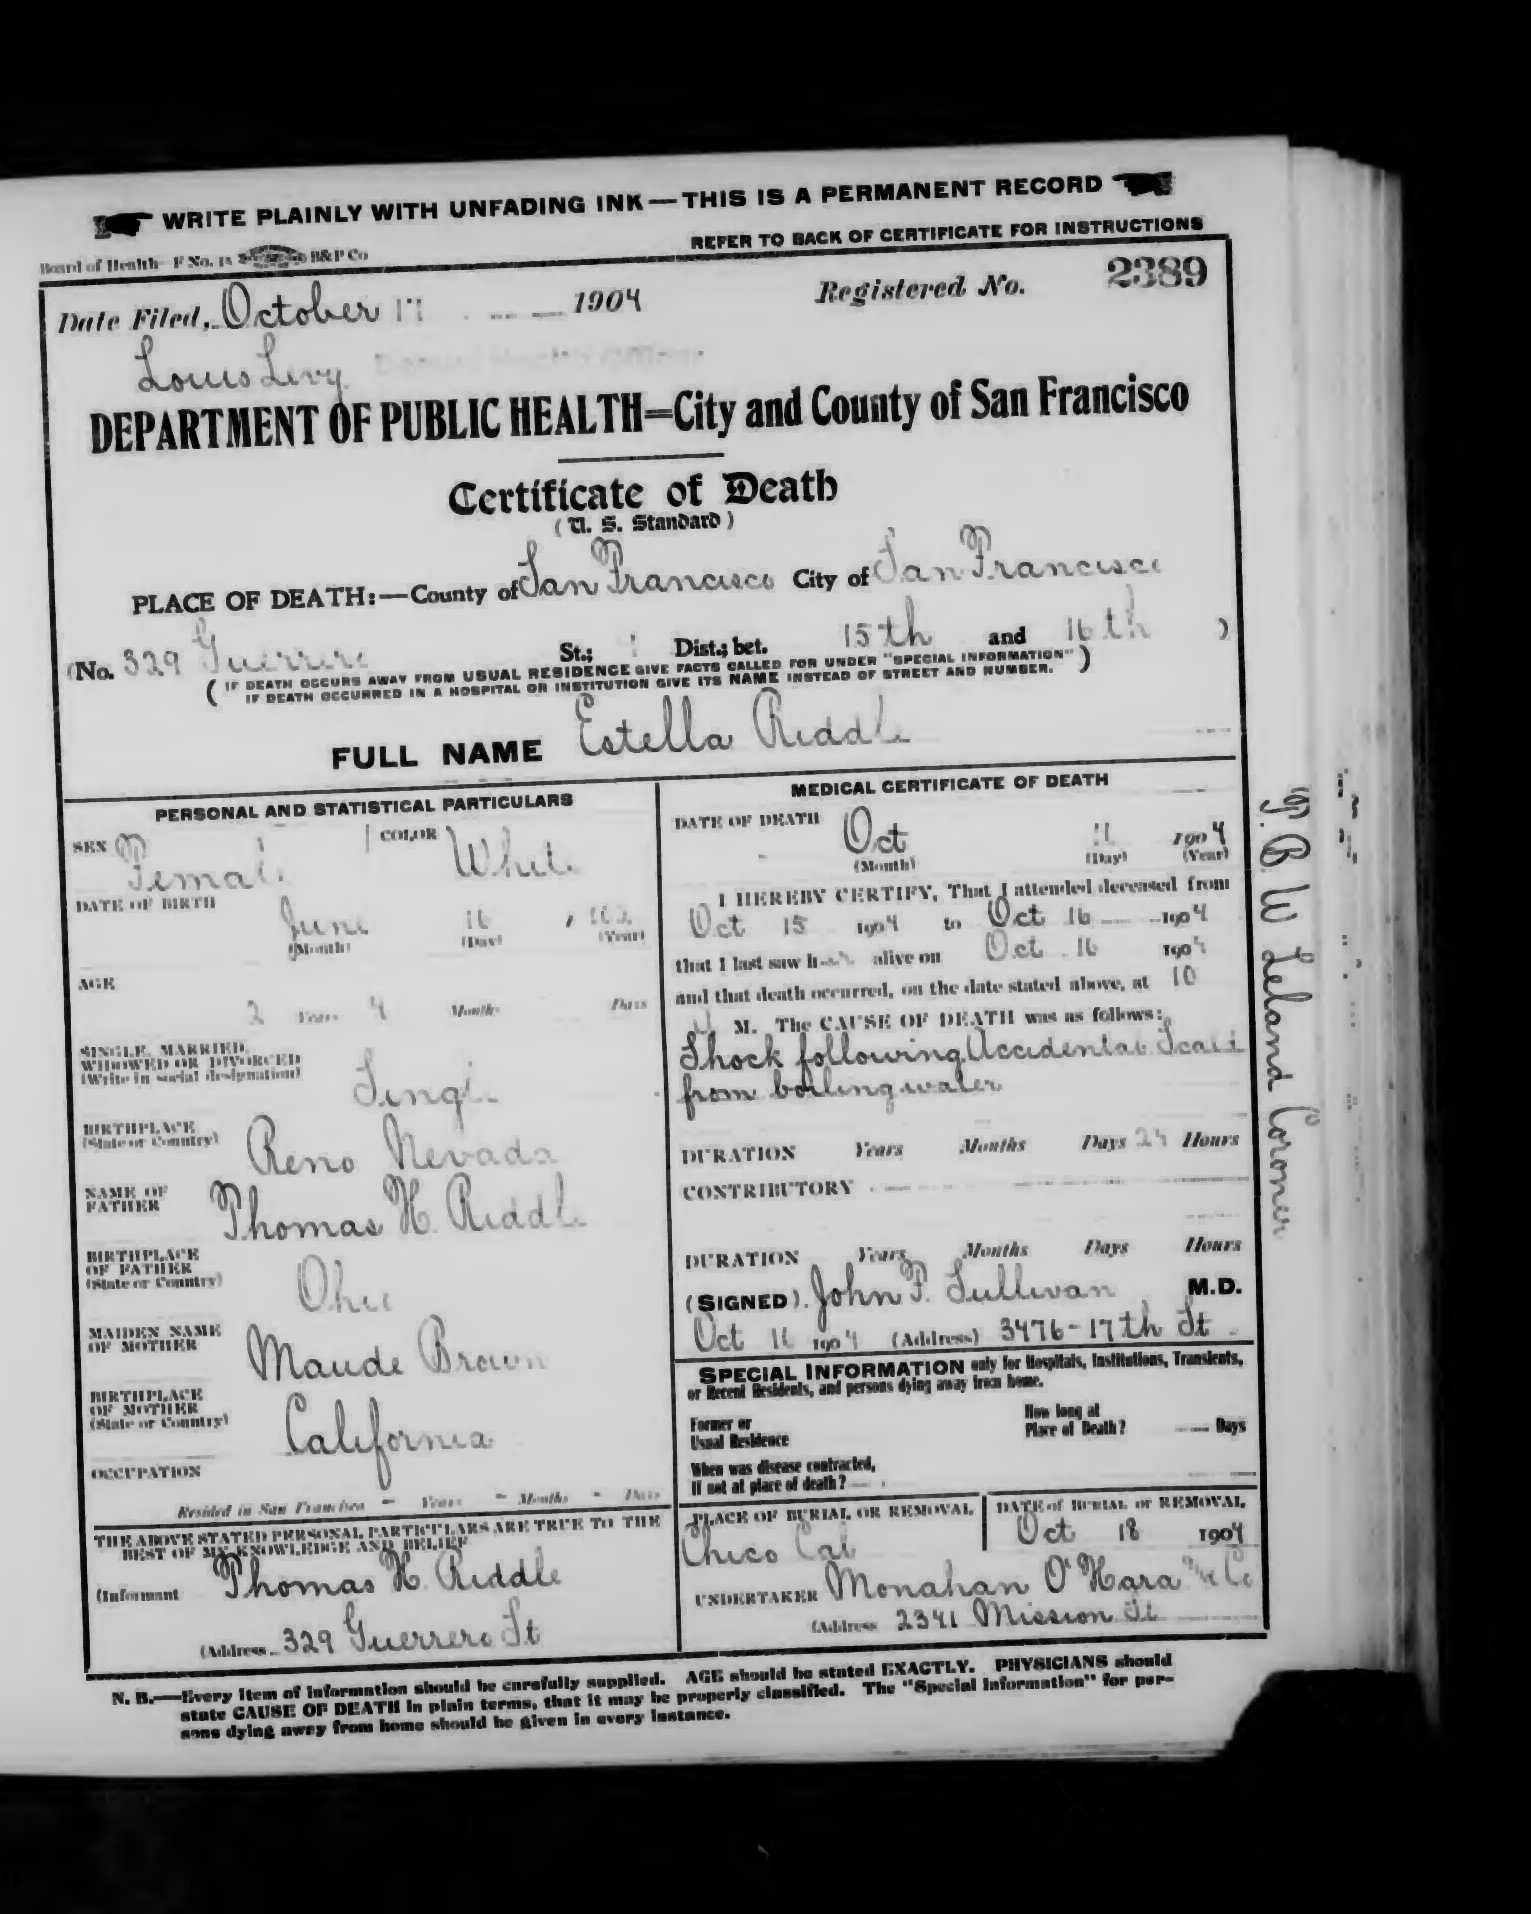 WRITE PLAINLY WITH UNFADING INK—THIS IS A PERMANENT RECORD
REFER TO BACK OF CERTIFICATE FOR INSTRUCTIONS
Board of Health—F No. 15 B&P Co
Date Filed, October 17 1904 Registered No. 2389
Louis Levy
DEPARTMENT OF PUBLIC HEALTH=City and County of San Francisco
Certificate of Death
(U. S. Standard)
PLACE OF DEATH:—County of San Francisco City of San Francisco
(No. 329 Guerrero St.; Dist.; bet. 15th and 16th )
( IF DEATH OCCURS AWAY FROM USUAL RESIDENCE GIVE FACTS CALLED FOR UNDER "SPECIAL INFORMATION" )
IF DEATH OCCURRED IN A HOSPITAL OR INSTITUTION GIVE ITS NAME INSTEAD OF STREET AND NUMBER.
FULL NAME Estella Riddle
PERSONAL AND STATISTICAL PARTICULARS
SEX Female COLOR White
DATE OF BIRTH
June 16
(Month) (Day) (Year)
AGE
2 Years 4 Months Days
SINGLE, MARRIED,
WIDOWED OR DIVORCED
(Write in social designation)
Single
BIRTHPLACE
(State or Country)
Reno Nevada
NAME OF
FATHER
Thomas H. Riddle
BIRTHPLACE
OF FATHER
(State or Country)
Ohio
MAIDEN NAME
OF MOTHER
Maude Brown
BIRTHPLACE
OF MOTHER
(State or Country)
California
OCCUPATION
Resided in San Francisco - Years - Months - Days
THE ABOVE STATED PERSONAL PARTICULARS ARE TRUE TO THE
BEST OF MY KNOWLEDGE AND BELIEF
(Informant Thomas H. Riddle
(Address 329 Guerrero St
MEDICAL CERTIFICATE OF DEATH
DATE OF DEATH
Oct 1904
(Month) (Day) (Year)
I HEREBY CERTIFY, That I attended deceased from
Oct 15 1904 to Oct 16 1904
that I last saw her alive on Oct. 16 1904
and that death occurred, on the date stated above, at 10
M. The CAUSE OF DEATH was as follows:
Shock following Accidental Scald
from boiling water
DURATION Years Months Days 24 Hours
CONTRIBUTORY
DURATION Years Months Days Hours
(SIGNED) John F. Sullivan M.D.
Oct 16 1904 (Address) 3476-17th St
SPECIAL INFORMATION only for Hospitals, Institutions, Transients,
or Recent Residents, and persons dying away from home.
Former or
Usual Residence
How long at
Place of Death? Days
When was disease contracted,
If not at place of death?
PLACE OF BURIAL OR REMOVAL
Chico Cal
DATE of BURIAL or REMOVAL
Oct 18 1904
UNDERTAKER Monahan O'Hara & Co
(Address 2341 Mission St
T. B. W Leland Coroner
N. B.—Every item of information should be carefully supplied. AGE should be stated EXACTLY. PHYSICIANS should
state CAUSE OF DEATH in plain terms, that it may be properly classified. The "Special Information" for per-
sons dying away from home should be given in every instance.